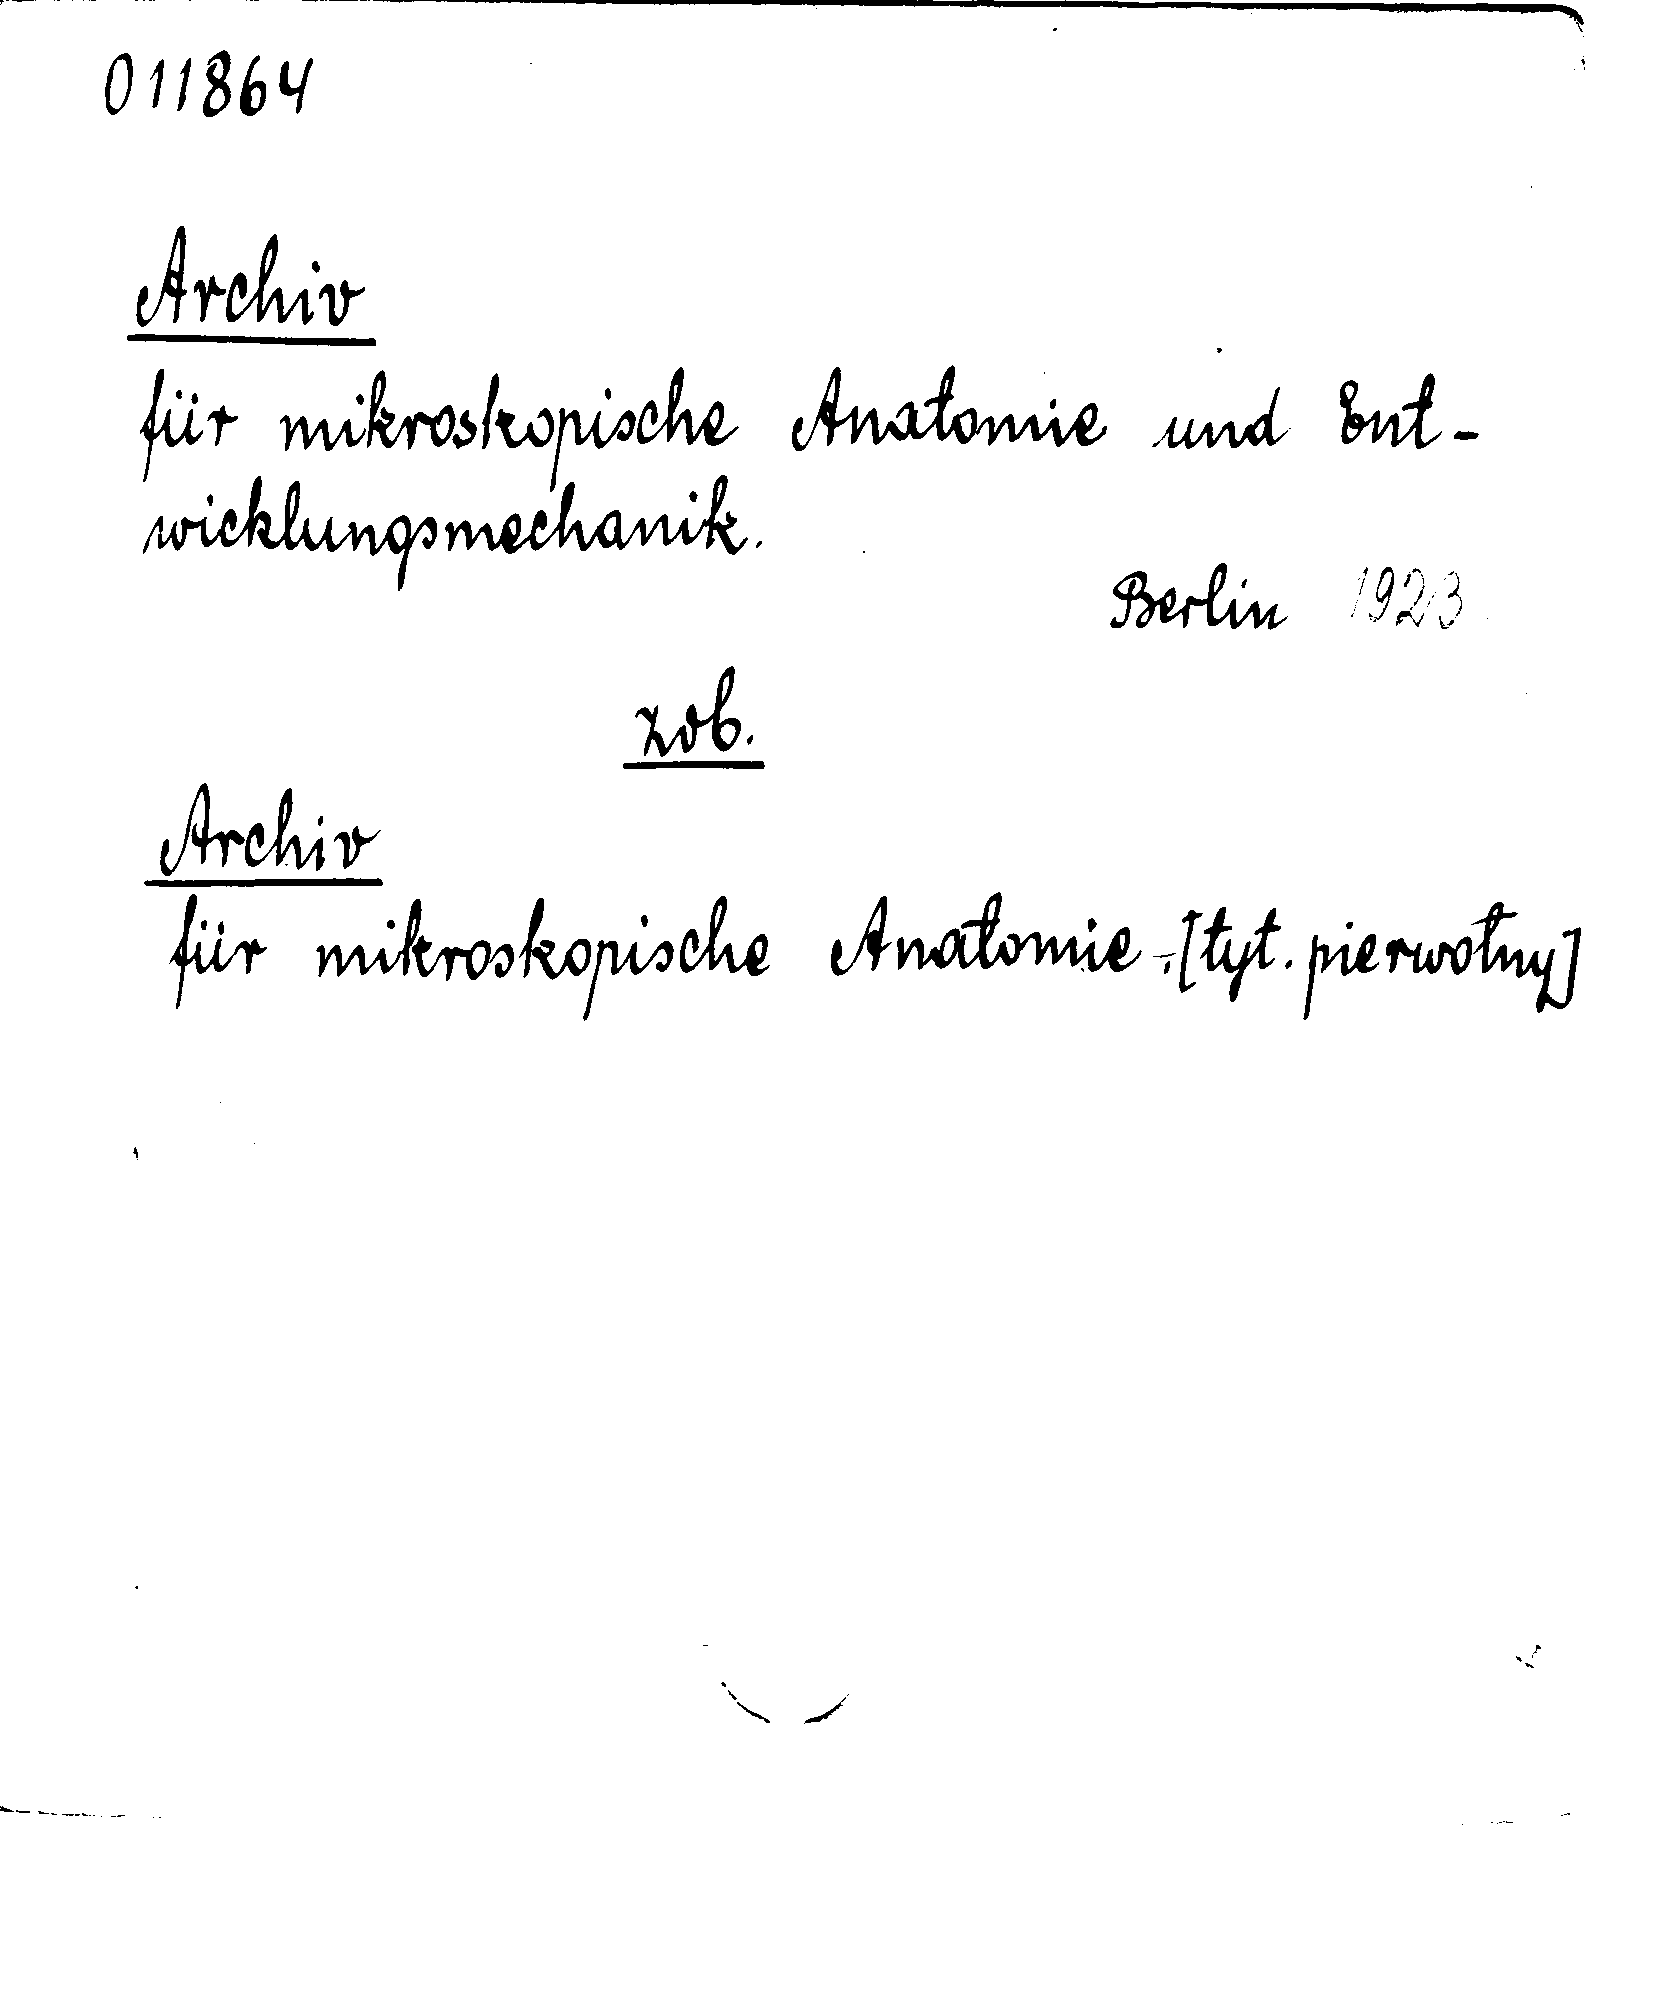 011864
Archiv
für mikroskopische Anatomie und Ent-
wicklungsmechanik.
Berlin 1923
zob.
Archiv
für mikroskopische Anatomie. [tyt. pierwotny]